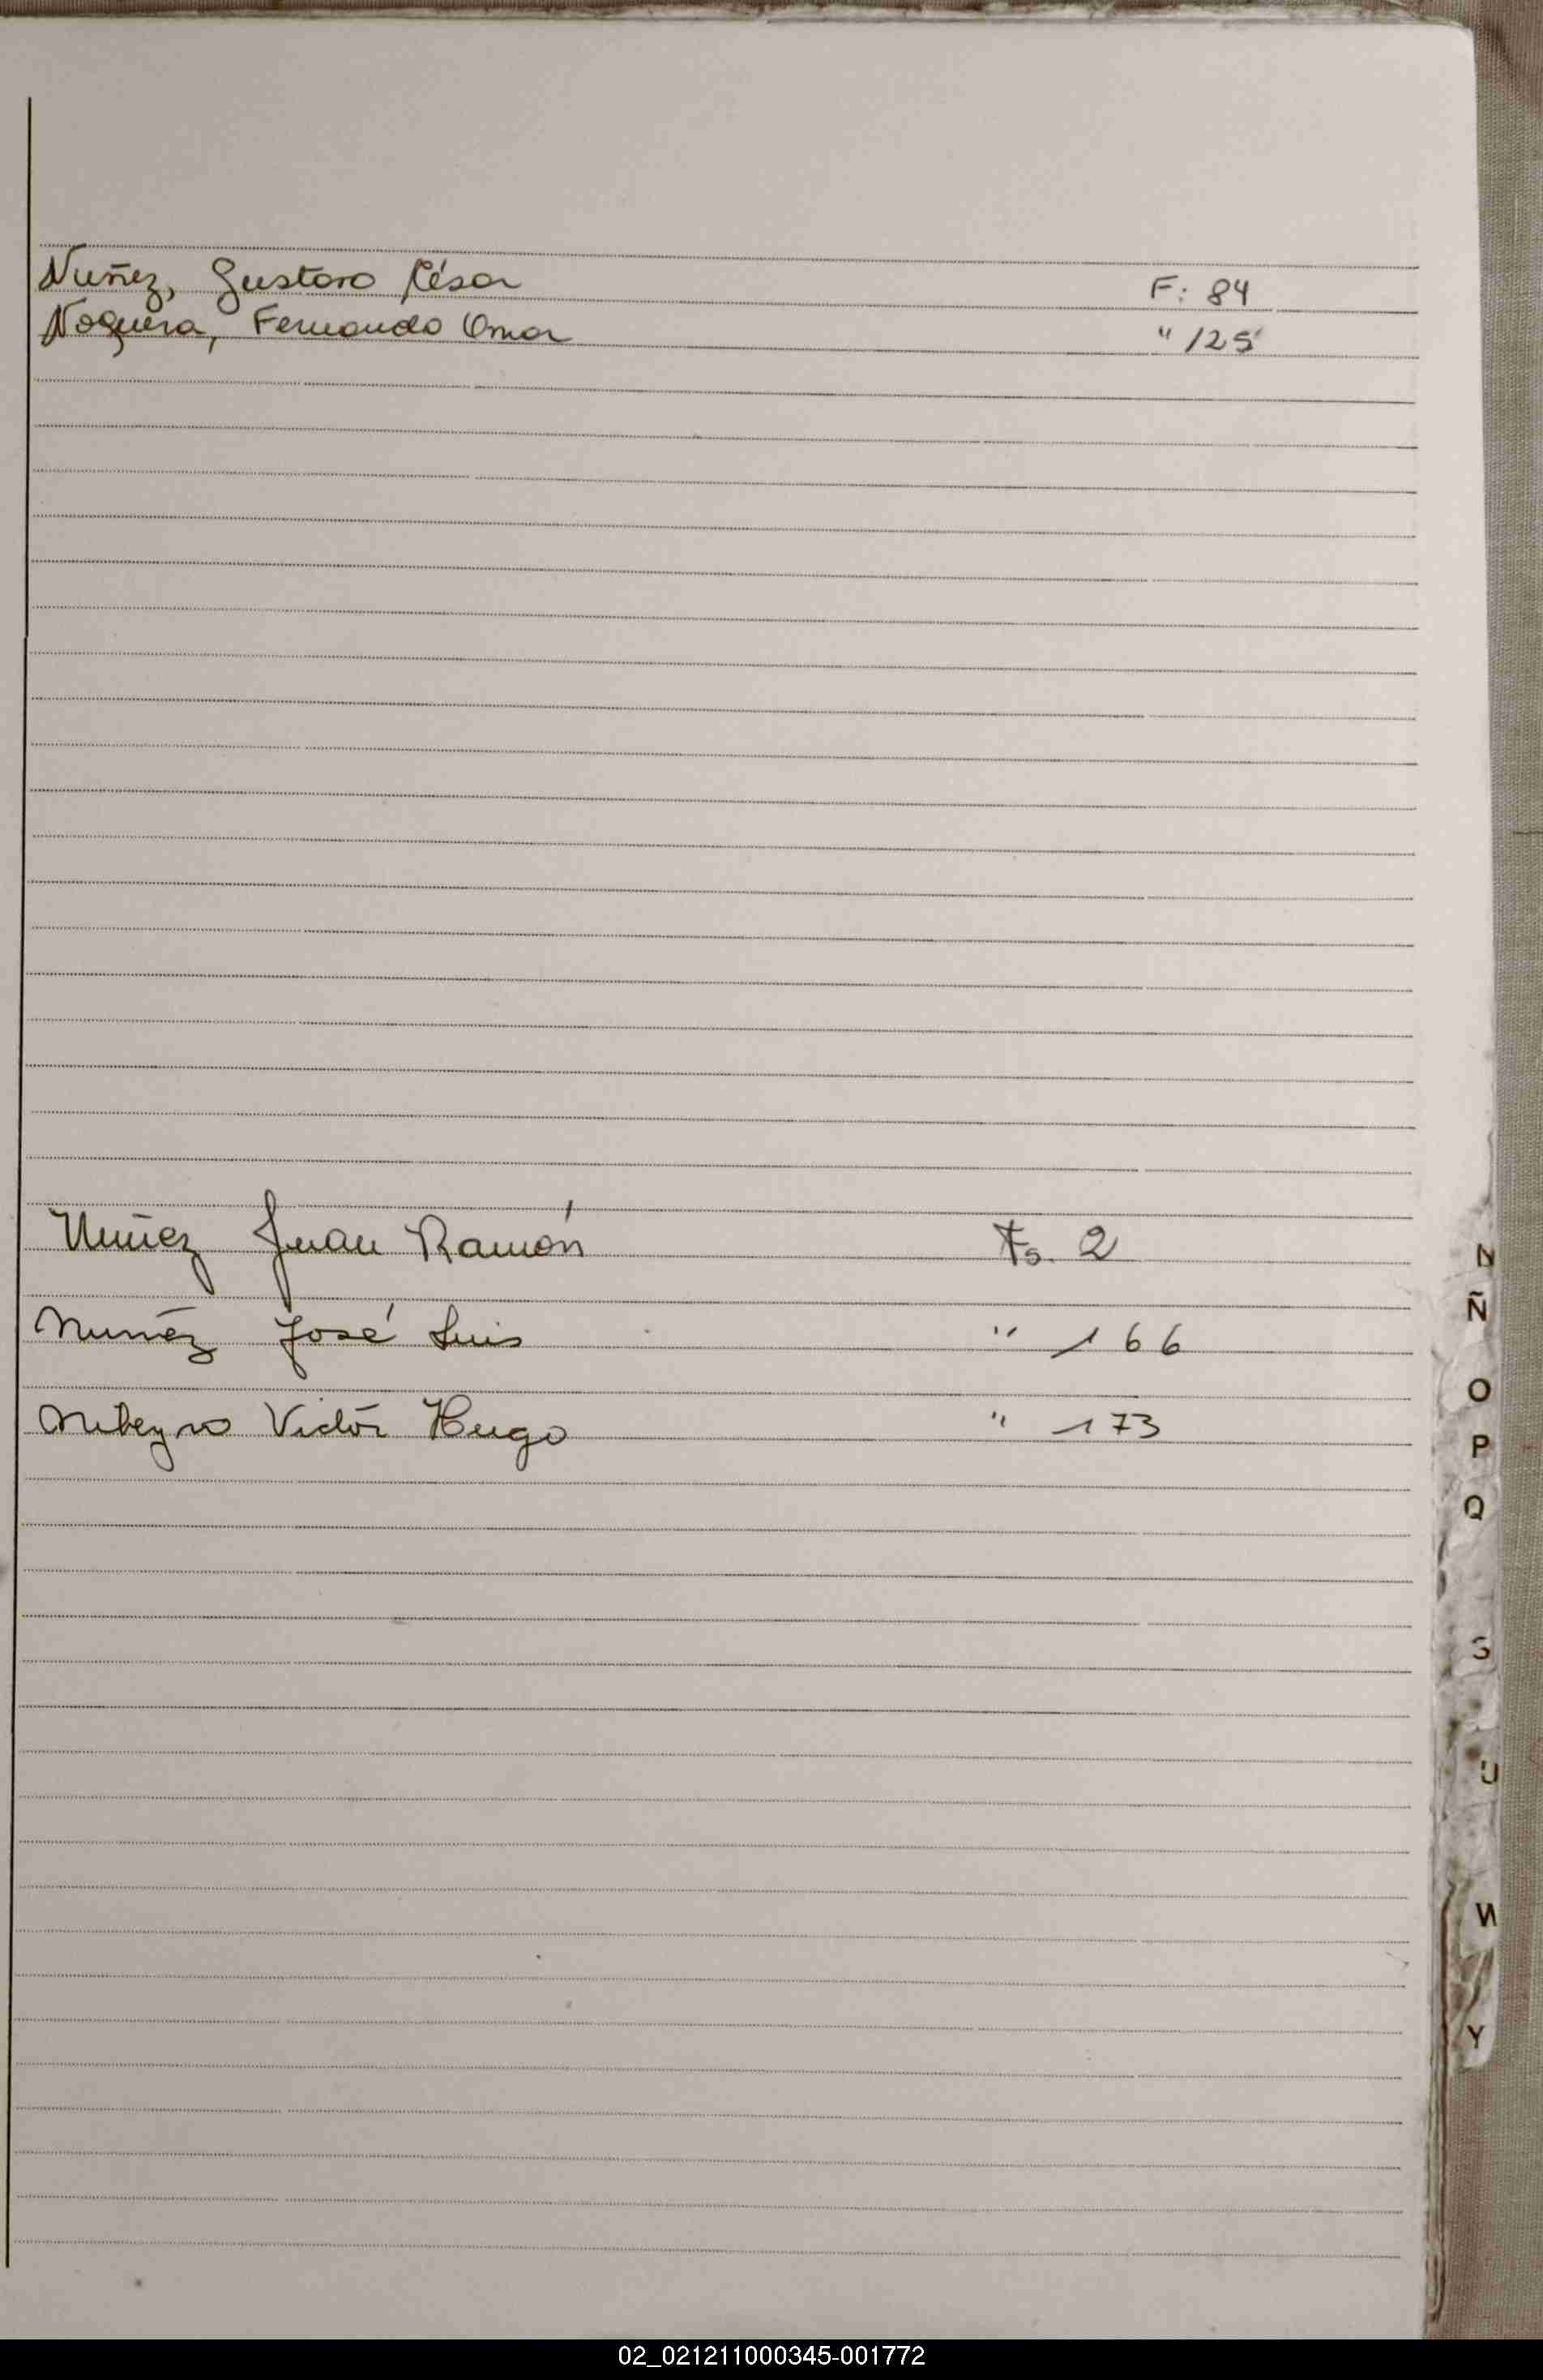 Nuñez, Gustavo César F: 84
Noguera, Fernando Omar " 125
Nuñez Juan Ramón Fs. 2
Nuñez José Luis " 166
Victór Hugo " 173
N
Ñ
O
P
Q
S
U
W
Y
02_021211000345-001772